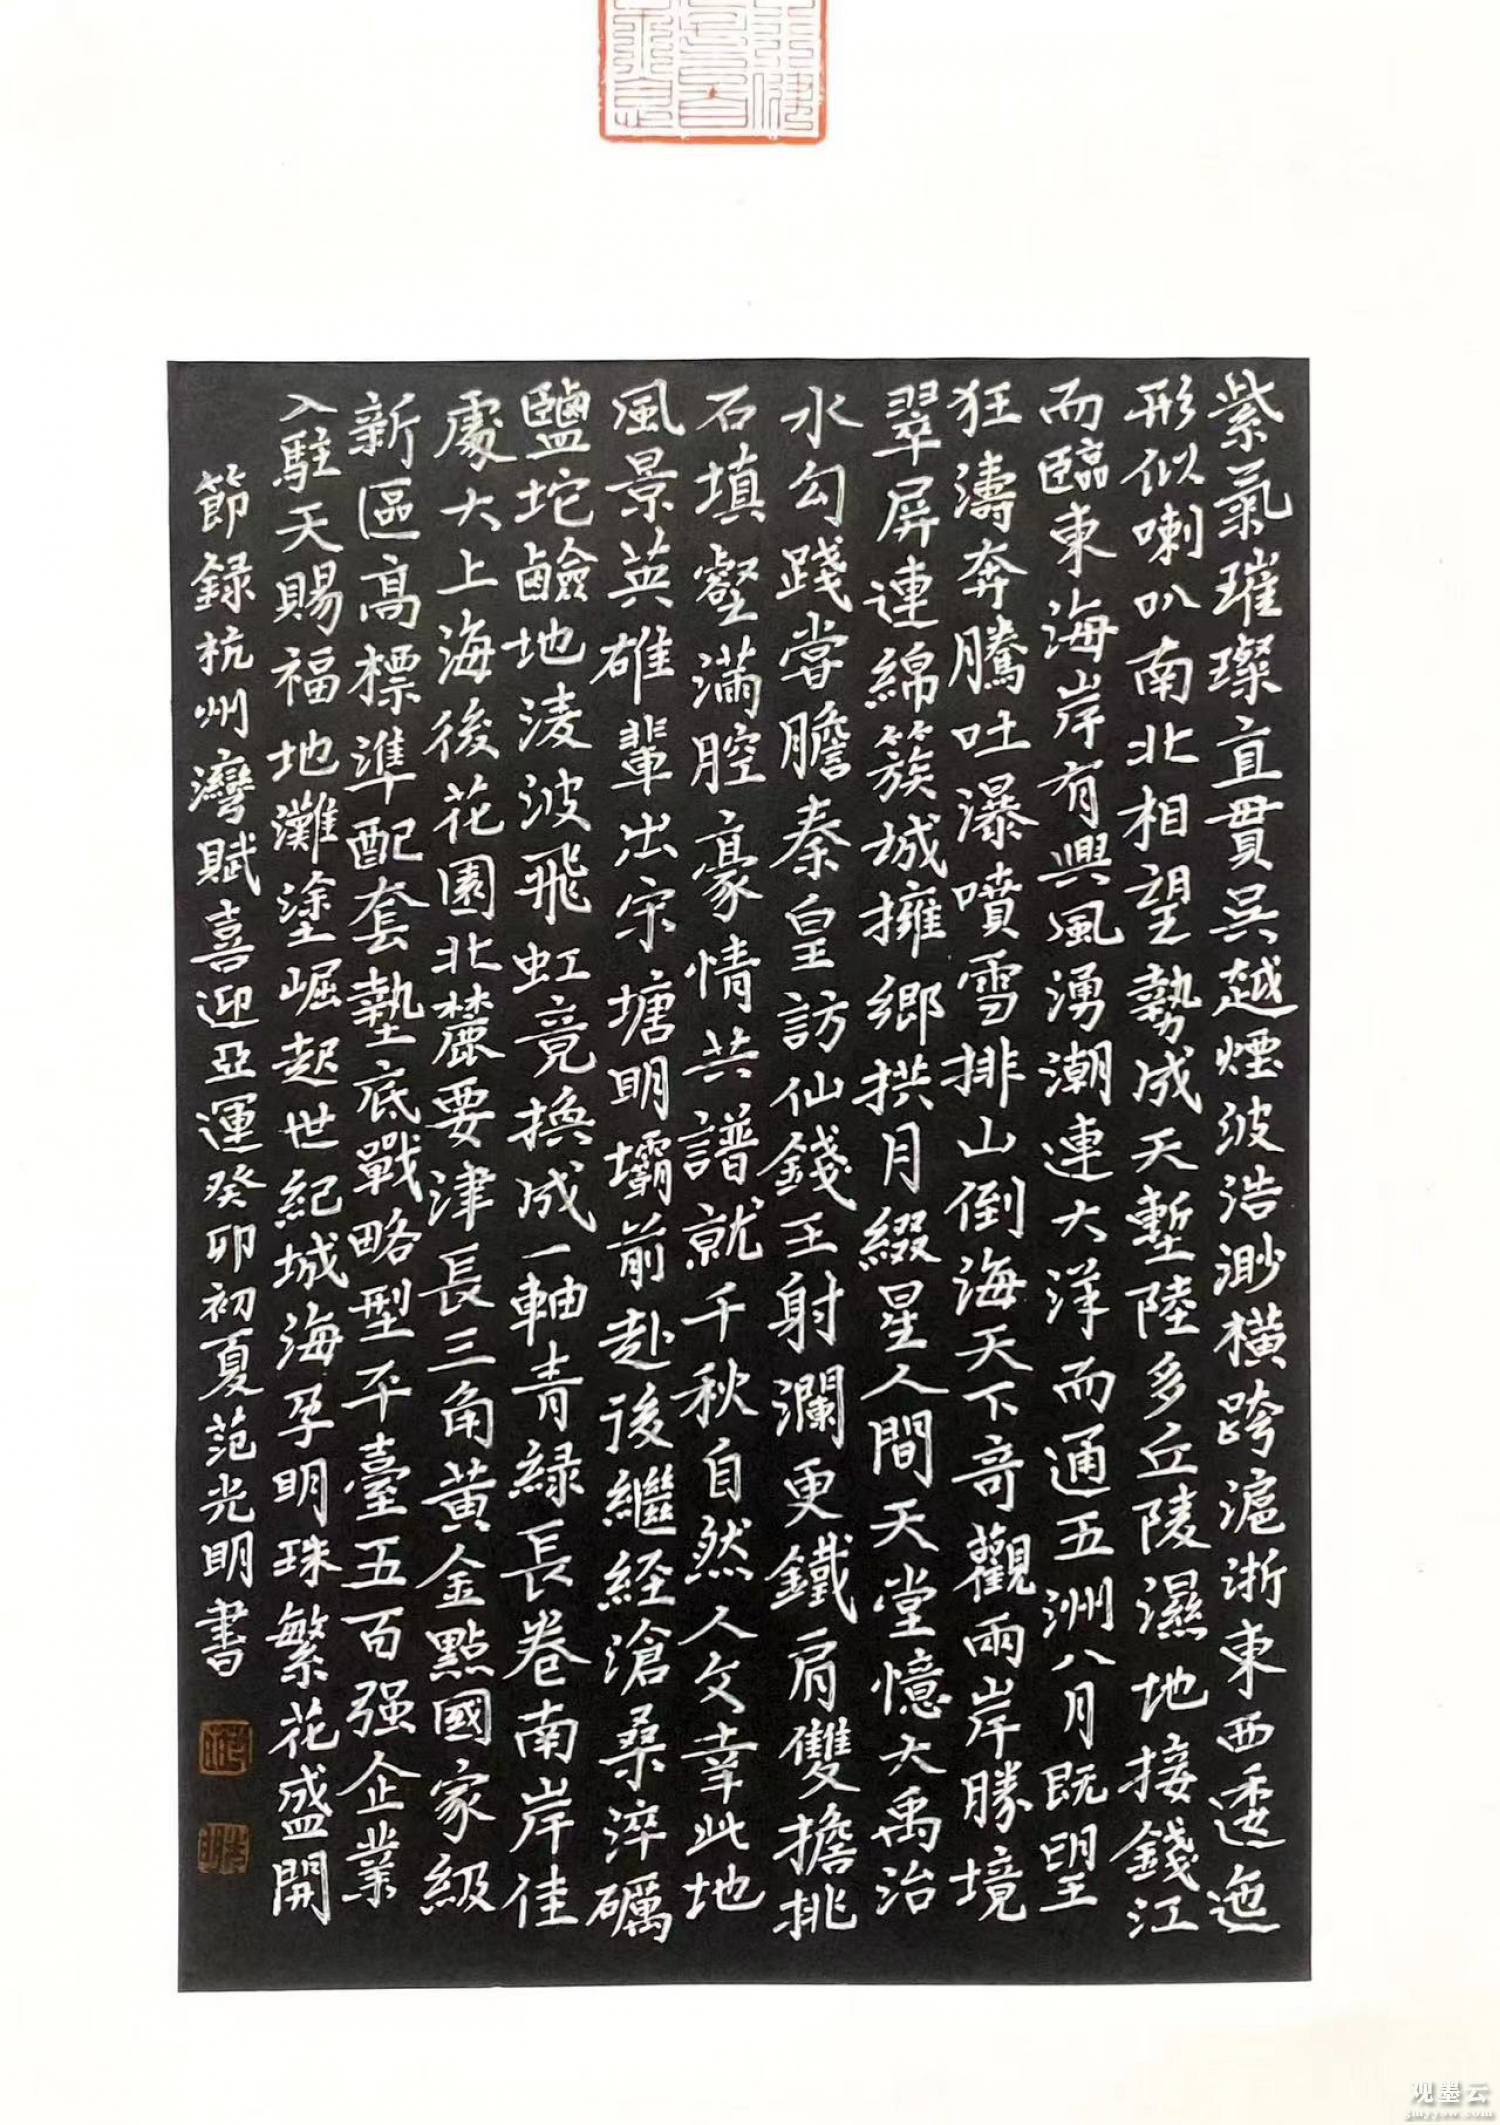 紫氣璀璨直貫吳越煙波浩渺橫跨滬浙東西逶迤
形似喇叭南北相望勢成天塹陸多丘陵濕地接錢江
而臨東海岸有興風湧潮連大洋而通五洲八月既望
狂濤奔騰吐瀑噴雪排山倒海天下奇觀兩岸勝境
翠屏連綿簇城擁鄉拱月綴星人間天堂憶大禹治
水勾踐嘗膽秦皇訪仙錢王射瀾更鐵肩雙擔挑
石填壑滿腔豪情共譜就千秋自然人文幸此地
風景英雄輩出宋塘明壩前赴後繼經滄桑淬礪
鹽坨鹼地淩波飛虹竟換成一軸青綠長卷南岸佳
處大上海後花園北麓要津長三角黃金點國家級
新區高標準配套墊底戰略型平臺五百强企業
入駐天賜福地灘塗崛起世紀城海孕明珠繁花盛開
節録杭州灣賦喜迎亞運癸卯初夏范光明書
观墨云
gmyyow.com